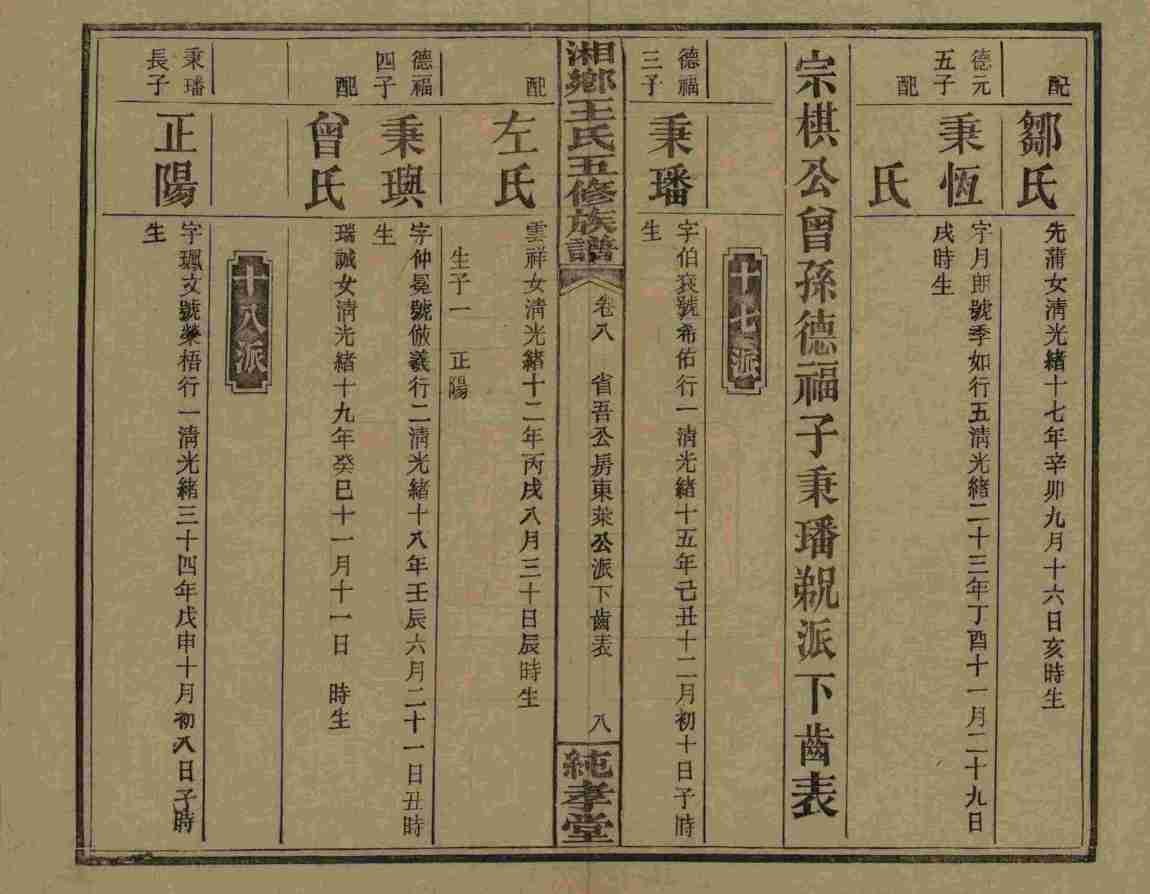 配
鄒氏
先蒲女淸光緒十七年辛卯九月十六日亥時生
德元
五子
秉恆
字月朗號季如行五淸光緒二十三年丁酉十一月二十九日
戌時生
配
氏
宗棋公曾孫德福子秉璠鄈派下齒表
十七派
德福
三子
秉璠
字伯哀號希佑行一淸光緒十五年己丑十二月初十日子時
生
湘鄉王氏五修族譜
卷八
省吾公房東萊公派下齒表
八
純孝堂
配
左氏
雲祥女淸光緒十二年丙戌八月三十日辰時生
生子一 正陽
德福
四子
秉璵
字仲冕號倣羲行二淸光緒十八年壬辰六月二十一日丑時
生
配
曾氏
瑞誠女淸光緒十九年癸巳十一月十一日 時生
十八派
秉璠
長子
正陽
字珮文號榮梧行一淸光緒三十四年戊申十月初八日子時
生